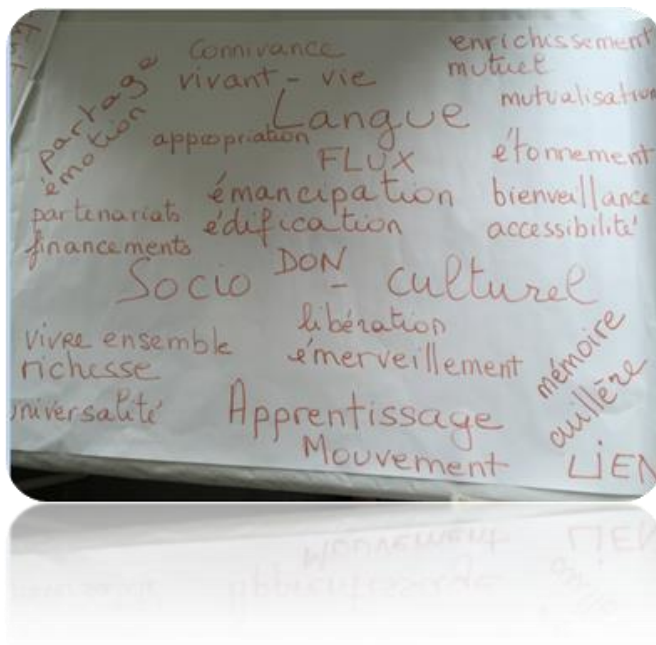 Connivance
vivant - vie
enrichissement
mutuel
mutualisation
partage
émotion
Langue
appropriation
FLUX
étonnement
émancipation
bienveillance
partenariats
édification
accessibilité
financements
DON
Socio - culturel
libération
vivre ensemble
émerveillement
richesse
mémoire
cuillère
universalité
Apprentissage
Mouvement
LIEN